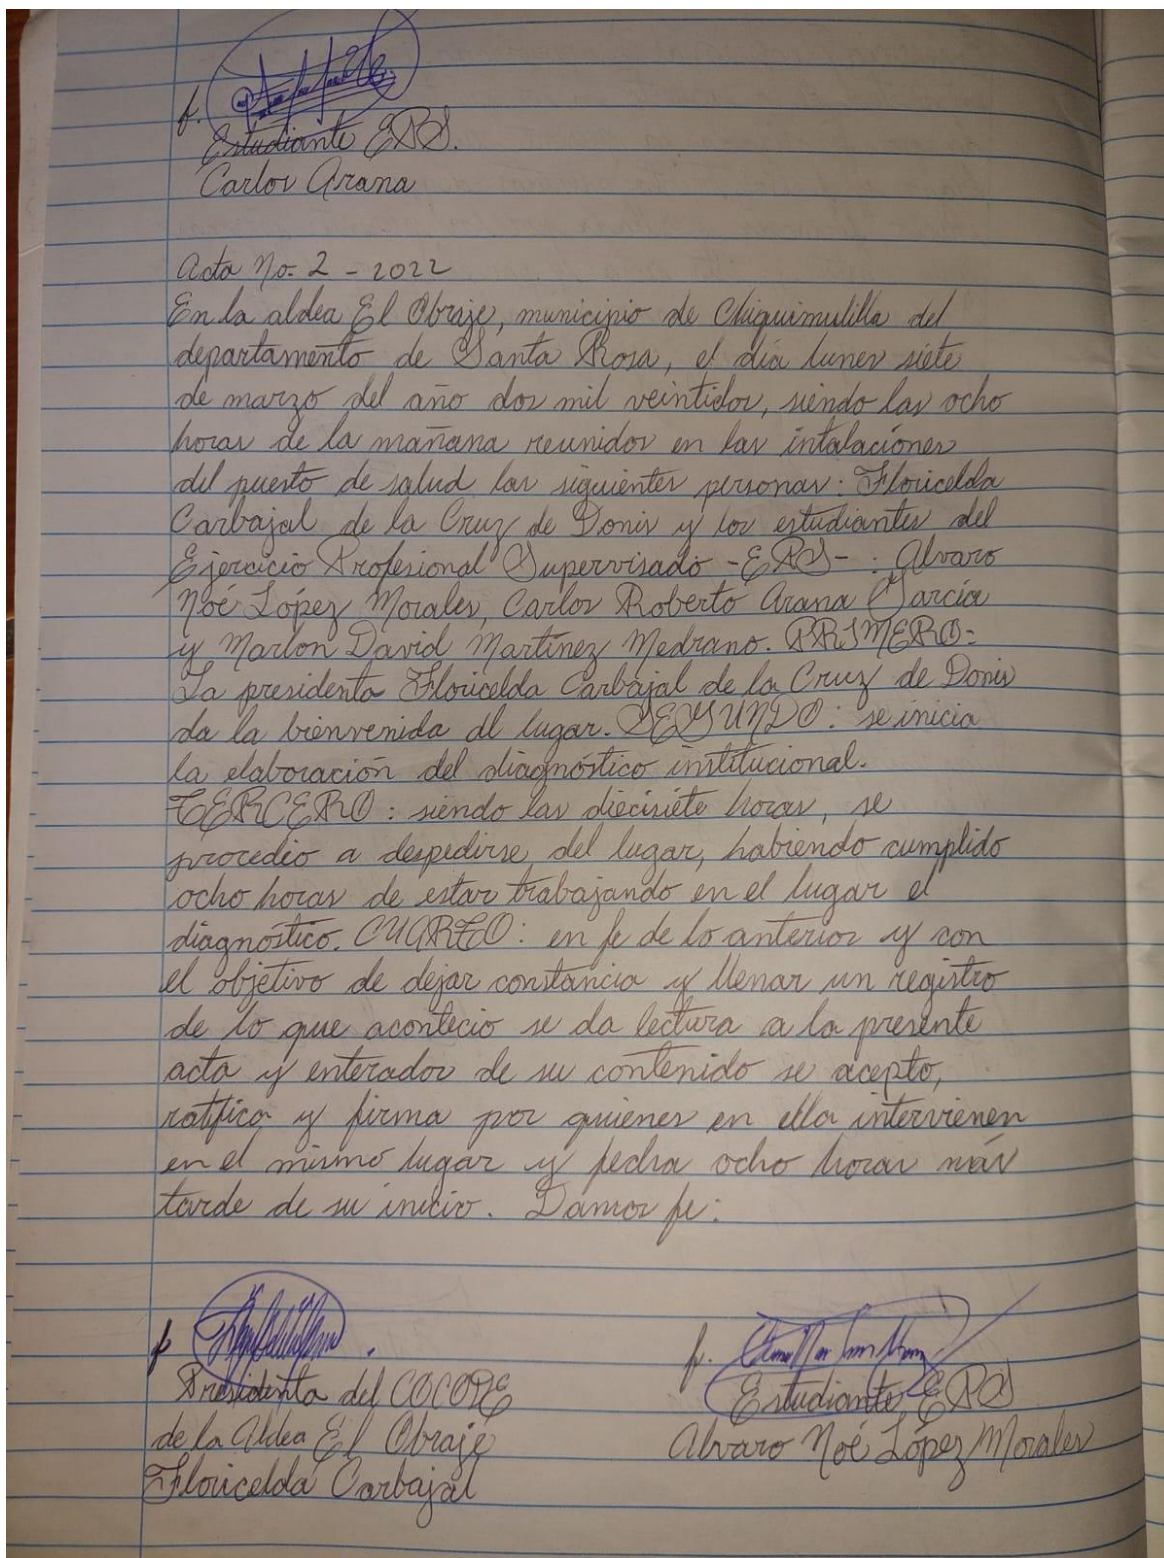 f.
Estudiante EPS.
Carlos Arana
Acta No. 2 - 2022
En la aldea El Obraje, municipio de Chiquimulilla del
departamento de Santa Rosa, el día lunes siete
de marzo del año dos mil veintidos, siendo las ocho
horas de la mañana reunidos en las intalaciones
del puesto de salud las siguientes personas: Floricelda
Carbajal de la Cruz de Donis y los estudiantes del
Ejercicio Profesional Supervisado -EPS- : Alvaro
Noé López Morales, Carlos Roberto Arana García
y Marlon David Martínez Medrano. PRIMERO:
La presidenta Floricelda Carbajal de la Cruz de Donis
da la bienvenida al lugar. SEGUNDO: se inicia
la elaboración del diagnóstico institucional.
TERCERO: siendo las diecisiete horas, se
procedio a despedirse del lugar, habiendo cumplido
ocho horas de estar trabajando en el lugar el
diagnóstico. CUARTO: en fe de lo anterior y con
el objetivo de dejar constancia y llenar un registro
de lo que acontecio se da lectura a la presente
acta y enterados de su contenido se acepto,
ratifica y firma por quienes en ella intervienen
en el mismo lugar y fecha ocho horas más
tarde de su inicio. Damos fe:
f. f.
Presidenta del COCODE Estudiante EPS
de la Aldea El Obraje Alvaro Noé López Morales
Floricelda Carbajal